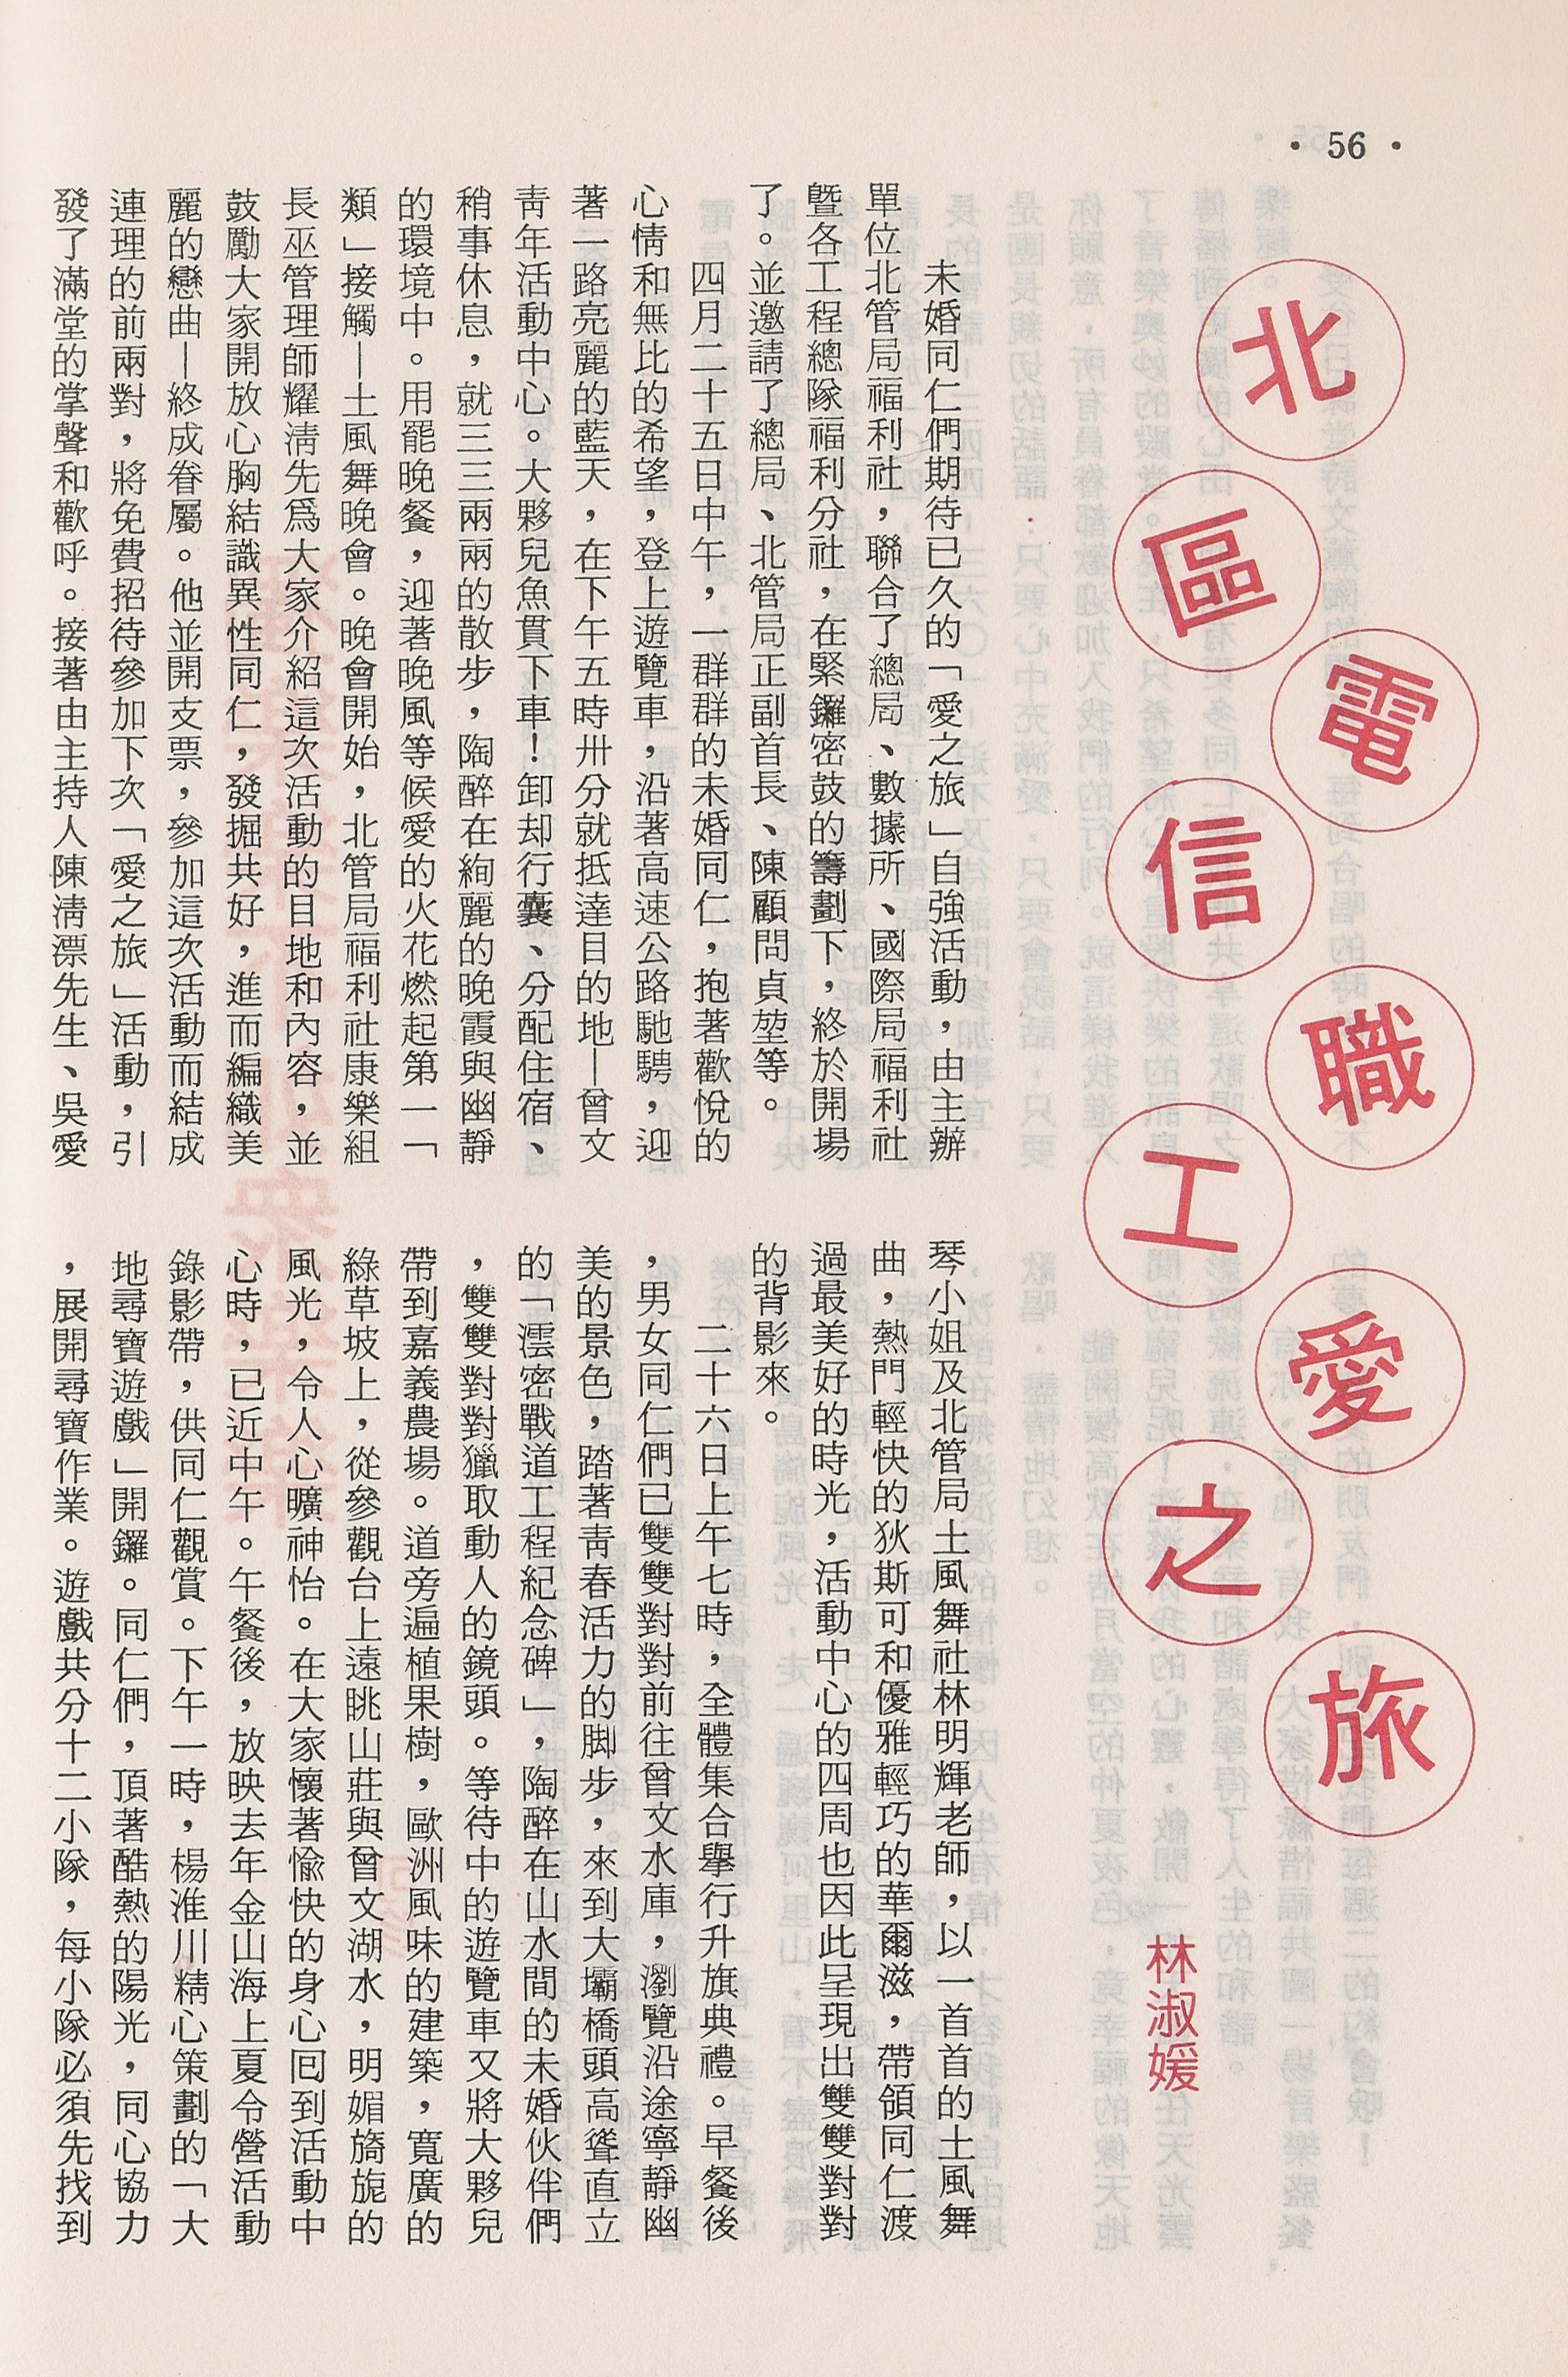 • 56 •
北區電信職工愛之旅
林淑媛
未婚同仁們期待已久的「愛之旅」自強活動，由主辦
單位北管局福利社，聯合了總局、數據所、國際局福利社
暨各工程總隊福利分社，在緊鑼密鼓的籌劃下，終於開場
了。並邀請了總局、北管局正副首長、陳顧問貞堃等。
四月二十五日中午，一群群的未婚同仁，抱著歡悅的
心情和無比的希望，登上遊覽車，沿著高速公路馳騁，迎
著一路亮麗的藍天，在下午五時卅分就抵達目的地—曾文
靑年活動中心。大夥兒魚貫下車！卸却行囊、分配住宿、
稍事休息，就三三兩兩的散步，陶醉在絢麗的晚霞與幽靜
的環境中。用罷晚餐，迎著晚風等候愛的火花燃起第一「
類」接觸—土風舞晚會。晚會開始，北管局福利社康樂組
長巫管理師耀淸先爲大家介紹這次活動的目地和內容，並
鼓勵大家開放心胸結識異性同仁，發掘共好，進而編織美
麗的戀曲—終成眷屬。他並開支票，參加這次活動而結成
連理的前兩對，將免費招待參加下次「愛之旅」活動，引
發了滿堂的掌聲和歡呼。接著由主持人陳淸漂先生、吳愛
琴小姐及北管局土風舞社林明輝老師，以一首首的土風舞
曲，熱門輕快的狄斯可和優雅輕巧的華爾滋，帶領同仁渡
過最美好的時光，活動中心的四周也因此呈現出雙雙對對
的背影來。
二十六日上午七時，全體集合擧行升旗典禮。早餐後
，男女同仁們已雙雙對對前往曾文水庫，瀏覽沿途寧靜幽
美的景色，踏著靑春活力的脚步，來到大壩橋頭高聳直立
的「澐密戰道工程紀念碑」，陶醉在山水間的未婚伙伴們
，雙雙對對獵取動人的鏡頭。等待中的遊覽車又將大夥兒
帶到嘉義農場。道旁遍植果樹，歐洲風味的建築，寬廣的
綠草坡上，從參觀台上遠眺山莊與曾文湖水，明媚旖旎的
風光，令人心曠神怡。在大家懷著愉快的身心囘到活動中
心時，已近中午。午餐後，放映去年金山海上夏令營活動
錄影帶，供同仁觀賞。下午一時，楊淮川精心策劃的「大
地尋寶遊戲」開鑼。同仁們，頂著酷熱的陽光，同心協力
，展開尋寶作業。遊戲共分十二小隊，每小隊必須先找到